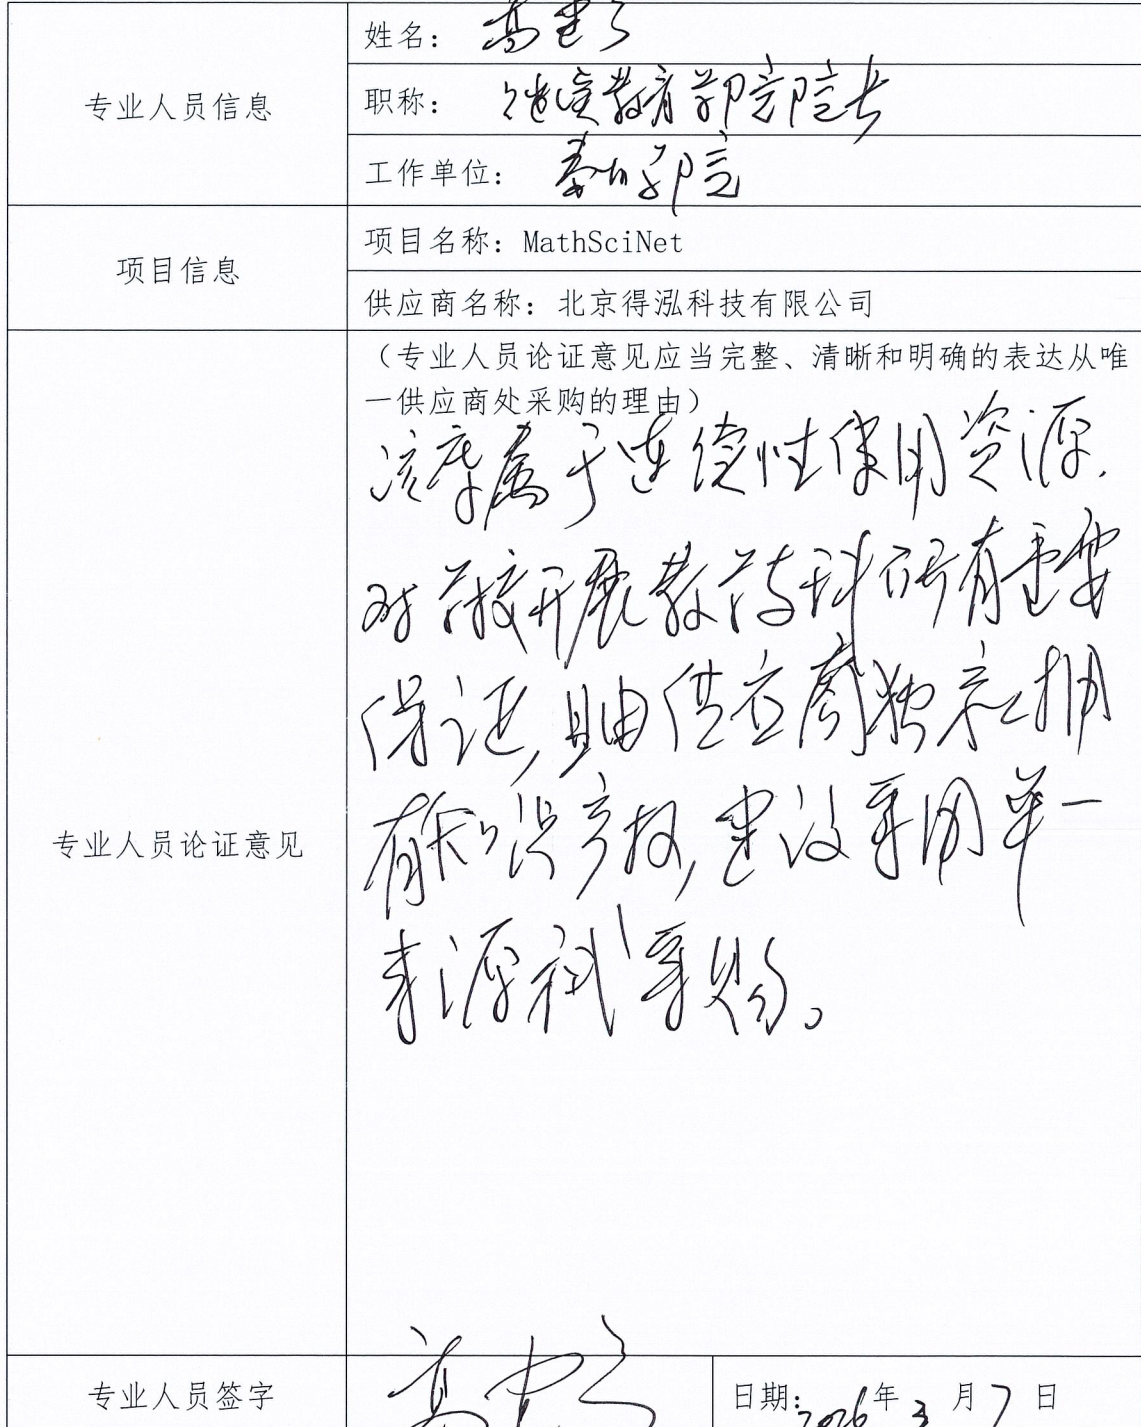 专业人员信息
姓名：高建
职称：继续教育学院院长
工作单位：泰州学院
项目信息
项目名称：MathSciNet
供应商名称：北京得泓科技有限公司
专业人员论证意见
（专业人员论证意见应当完整、清晰和明确的表达从唯
一供应商处采购的理由）
该库属于连续性使用资源，
对学校开展教学科研有重要
保证，且由供应商独家拥
有知识产权，建议采用单一
来源式采购。
专业人员签字
高
日期：2026年3月7日